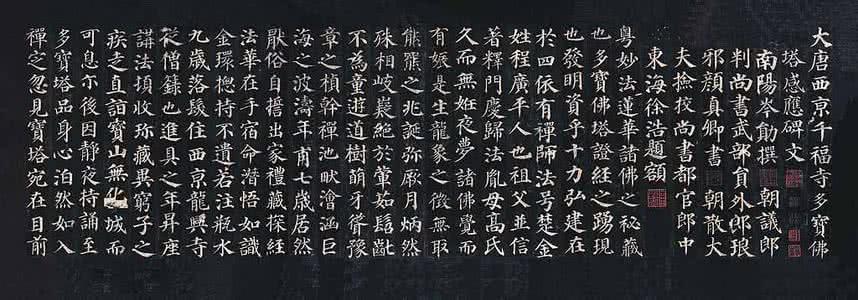 大唐西京千福寺多寶佛
塔感應碑文
南陽岑勛撰 朝議郎
判尚書武部員外郎琅
邪顏真卿書 朝散大
夫撿挍尚書都官郎中
東海徐浩題額
粵妙法蓮華諸佛之秘藏
也多寶佛塔證經之踴現
也發明資乎十力弘建在
於四依有禪師法号楚金
姓程廣平人也祖父並信
著釋門慶歸法胤母高氏
久而無姙夜夢諸佛覺而
有娠是生龍象之徵無取
熊羆之兆誕弥厥月炳然
殊相岐嶷絕於葷茹髫齔
不為童遊道樹萌牙聳豫
章之楨幹禪池畎澮涵巨
海之波濤年甫七歲居然
厭俗自誓出家禮藏探經
法華在手宿命潛悟如識
金環捴持不遺若注瓶水
九歲落髮住西京龍興寺
從僧籙也進具之年昇座
講法頃收珍藏異窮子之
疾走直詣寶山無化城而
可息尔後因靜夜持誦至
多寶塔品身心泊然如入
禪定忽見寶塔宛在目前